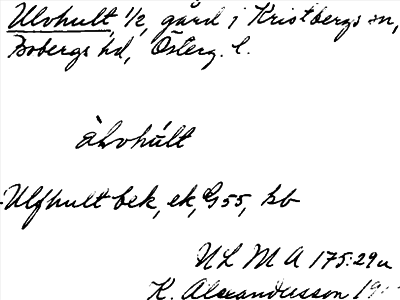 Ulvhult, 1/2, gård i Kristbergs sn,
Bobergs hd, Österg. l.
Ulfhult bek, ek, G55, kb
ULMA 175:29a
K. Alexandersson